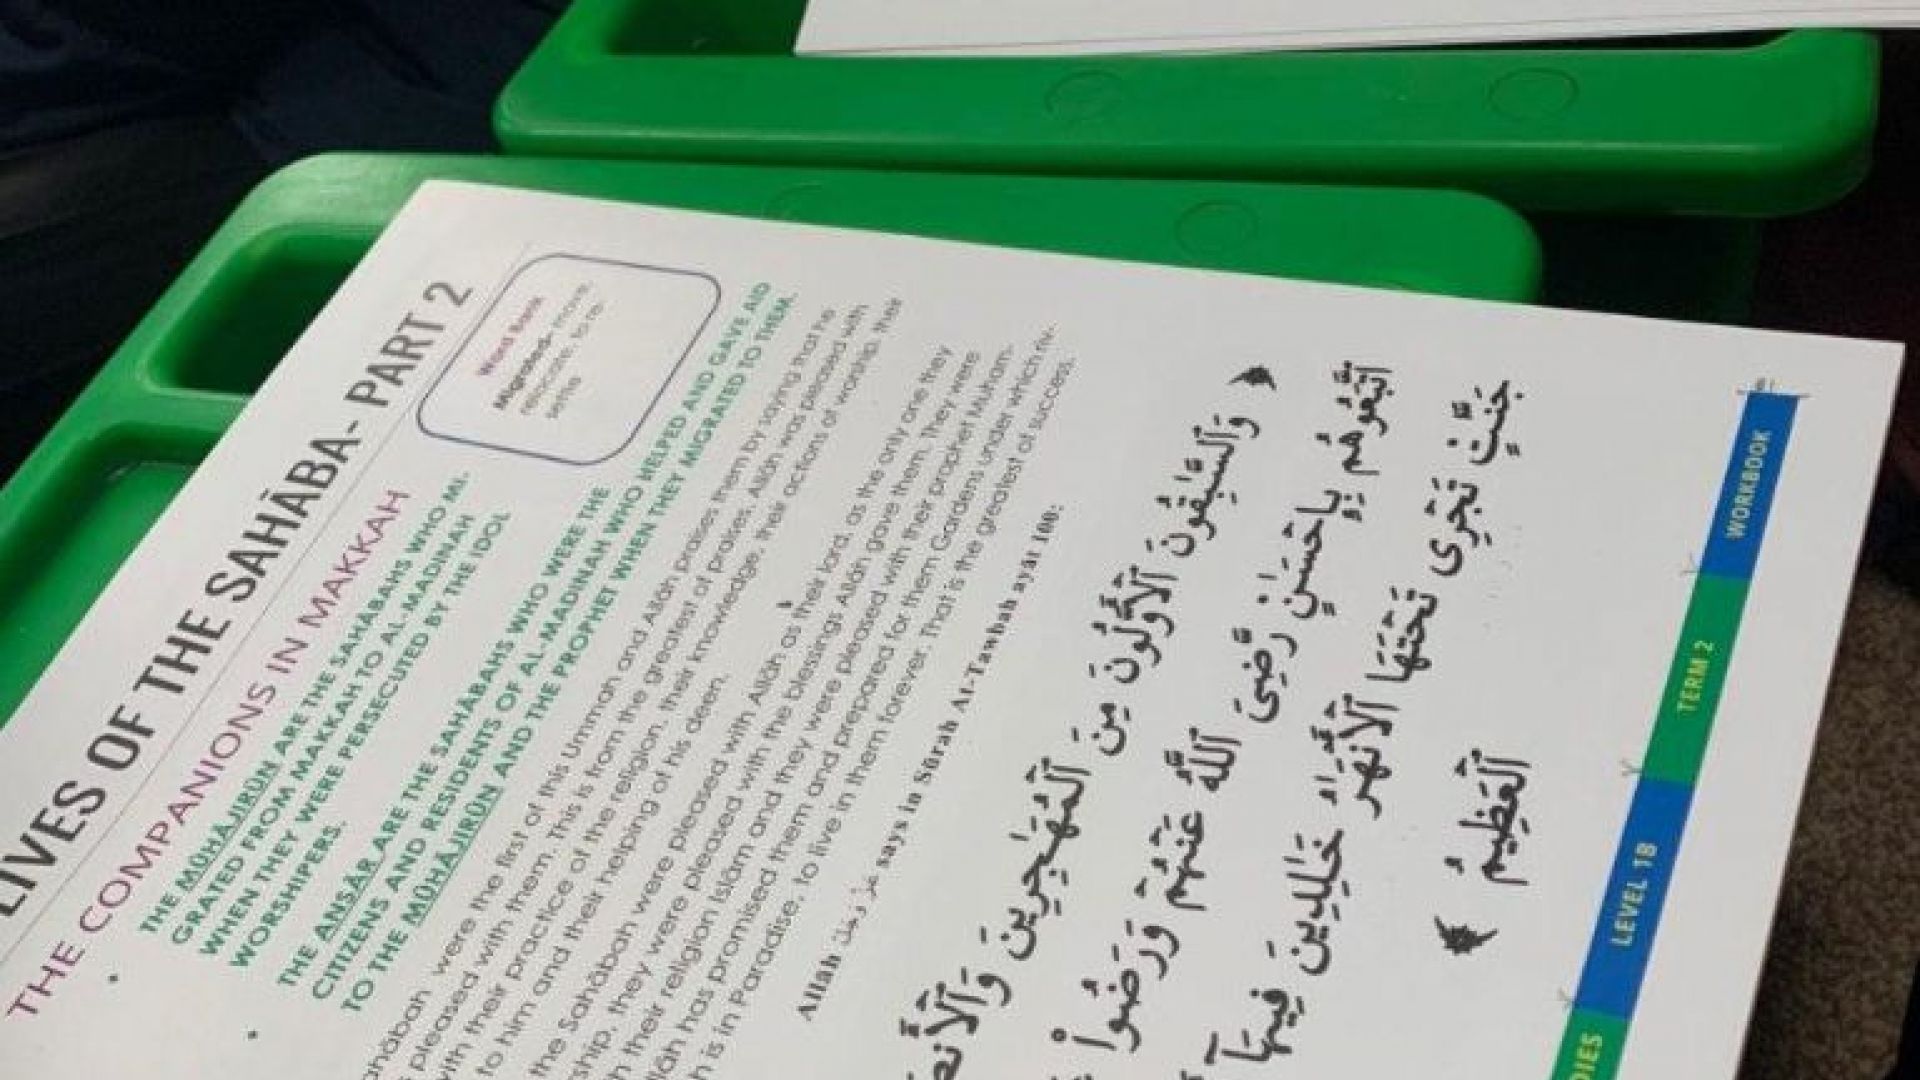 LIVES OF THE SAHĀBA- PART 2
THE COMPANIONS IN MAKKAH
Word Bank
Migrated- move,
relocate, to re-
settle
THE MŪHĀJIRŪN ARE THE SAHĀBAHS WHO MI-
GRATED FROM MAKKAH TO AL-MADINAH
WHEN THEY WERE PERSECUTED BY THE IDOL
WORSHIPERS.
THE ANSĀR ARE THE SAHĀBAHS WHO WERE THE
CITIZENS AND RESIDENTS OF AL-MADINAH WHO HELPED AND GAVE AID
TO THE MŪHĀJIRŪN AND THE PROPHET WHEN THEY MIGRATED TO THEM.
were the first of this Ummah and Allāh praises them by saying that he
pleased with them. This is from the greatest of praises. Allāh was pleased with
their practice of the religion, their knowledge, their actions of worship, their
to him and their helping of his deen.
the Sahābah were pleased with Allāh as their lord, as the only one they
they were pleased with the blessings Allāh gave them. They were
their religion Islām and they were pleased with their prophet Muham-
has promised them and prepared for them Gardens under which riv-
is in Paradise, to live in them forever. That is the greatest of success.
Allāh عز وجل says in Sūrah At-Tawbah ayāt 100:
وَٱلسَّـٰبِقُونَ ٱلْأَوَّلُونَ مِنَ ٱلْمُهَـٰجِرِينَ
ٱتَّبَعُوهُم بِإِحْسَـٰنٍ رَّضِىَ ٱللَّهُ عَنْهُمْ وَرَضُوا۟
جَنَّـٰتٍ تَجْرِى تَحْتَهَا ٱلْأَنْهَـٰرُ خَـٰلِدِينَ فِيهَآ
ٱلْعَظِيمُ
LEVEL 1B
TERM 2
WORKBOOK